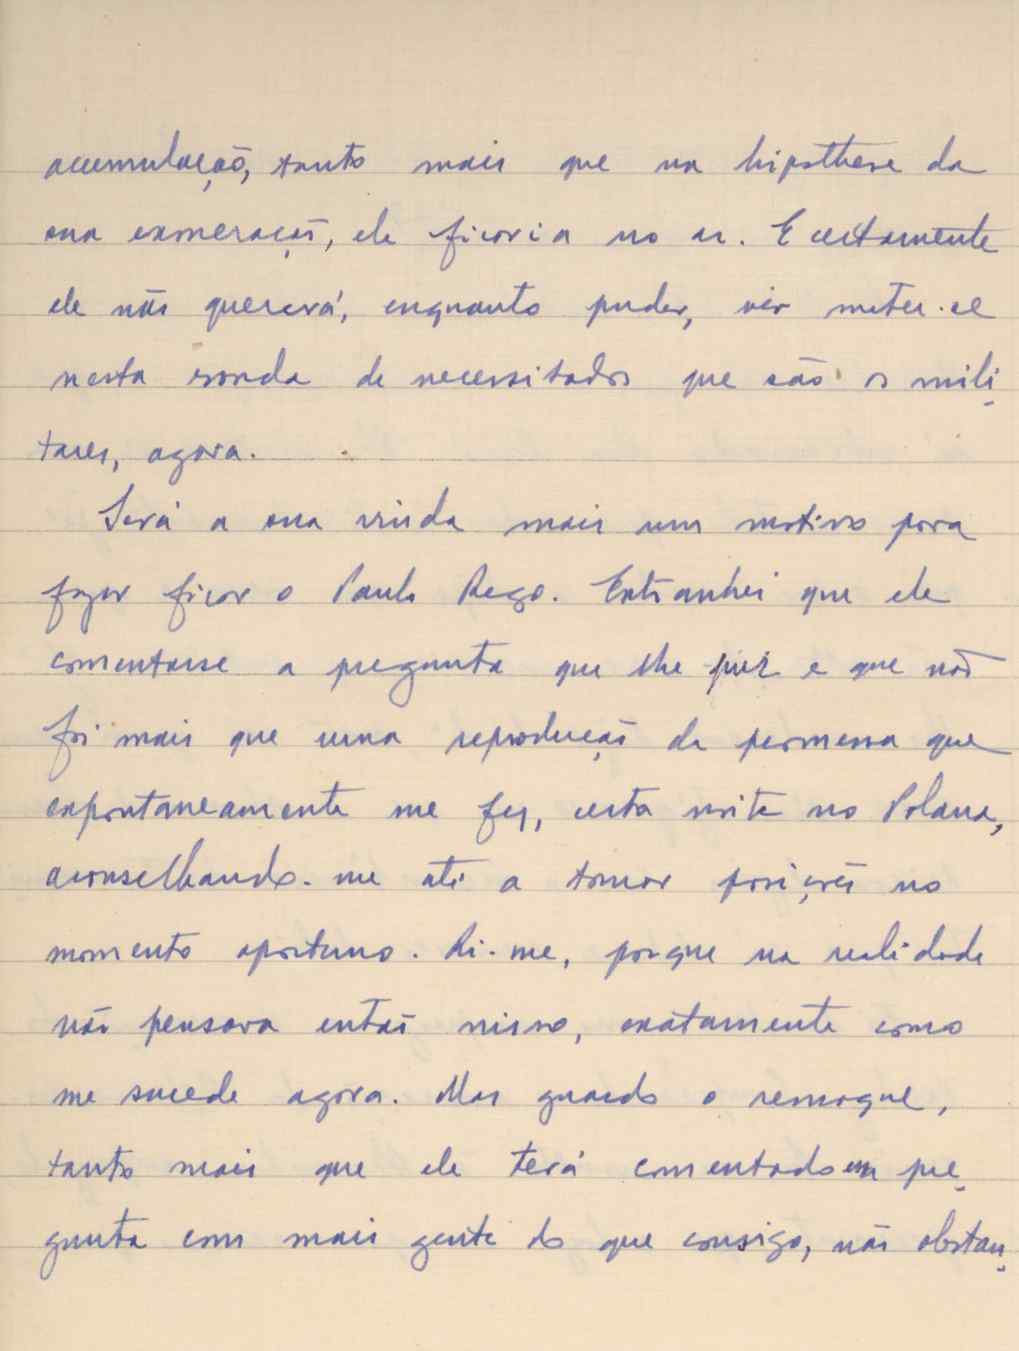 acumulação, tanto mais que na hipothese da
sua exoneração, ele ficaria no ar. E certamente
ele não quererá, enquanto puder, vir meter-se
nesta ronda de necessitados que são os mili-
tares, agora.
Será a sua vinda mais um motivo para
fazer ficar o Paulo Rego. Extranhei que ele
comentasse a pregunta que lhe fiz e que não
foi mais que uma reprodução da permessa que
expontaneamente me fez, certa noite no Polana,
aconselhando-me até a tomar posições no
momento oportuno. Ri-me, porque na realidade
não pensava então nisso, exatamente como
me sucede agora. Mas guardo o remoque,
tanto mais que ele terá comentado em pre-
gunta com mais gente do que consigo, não obstan-